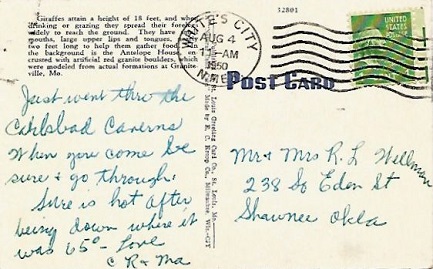 Giraffes attain a height of 18 feet, and when
drinking or grazing they spread their forelegs
widely to reach the ground. They have small
mouths, large upper lips and tongues,
two feet long to help them gather food. In
the background is the Antelope House,
crusted with artificial red granite boulders, which
were modeled from actual formations at Granite-
ville, Mo.
32801
WHITE'S CITY
AUG 4
AM
1950
N.MEX.
UNITED
STATES
POSTAGE
POST CARD
St. Louis Greeting Card Co., St. Louis, Mo.
Made by E. C. Kropp Co., Milwaukee, Wis.
Just went thru the
Carlsbad Caverns
When you come be
sure & go through.
Sure is hot after
being down where it
was 65° - Love
C R & Ma
Mr & Mrs R. L. Wellman
238 So Eden St
Shawnee Okla